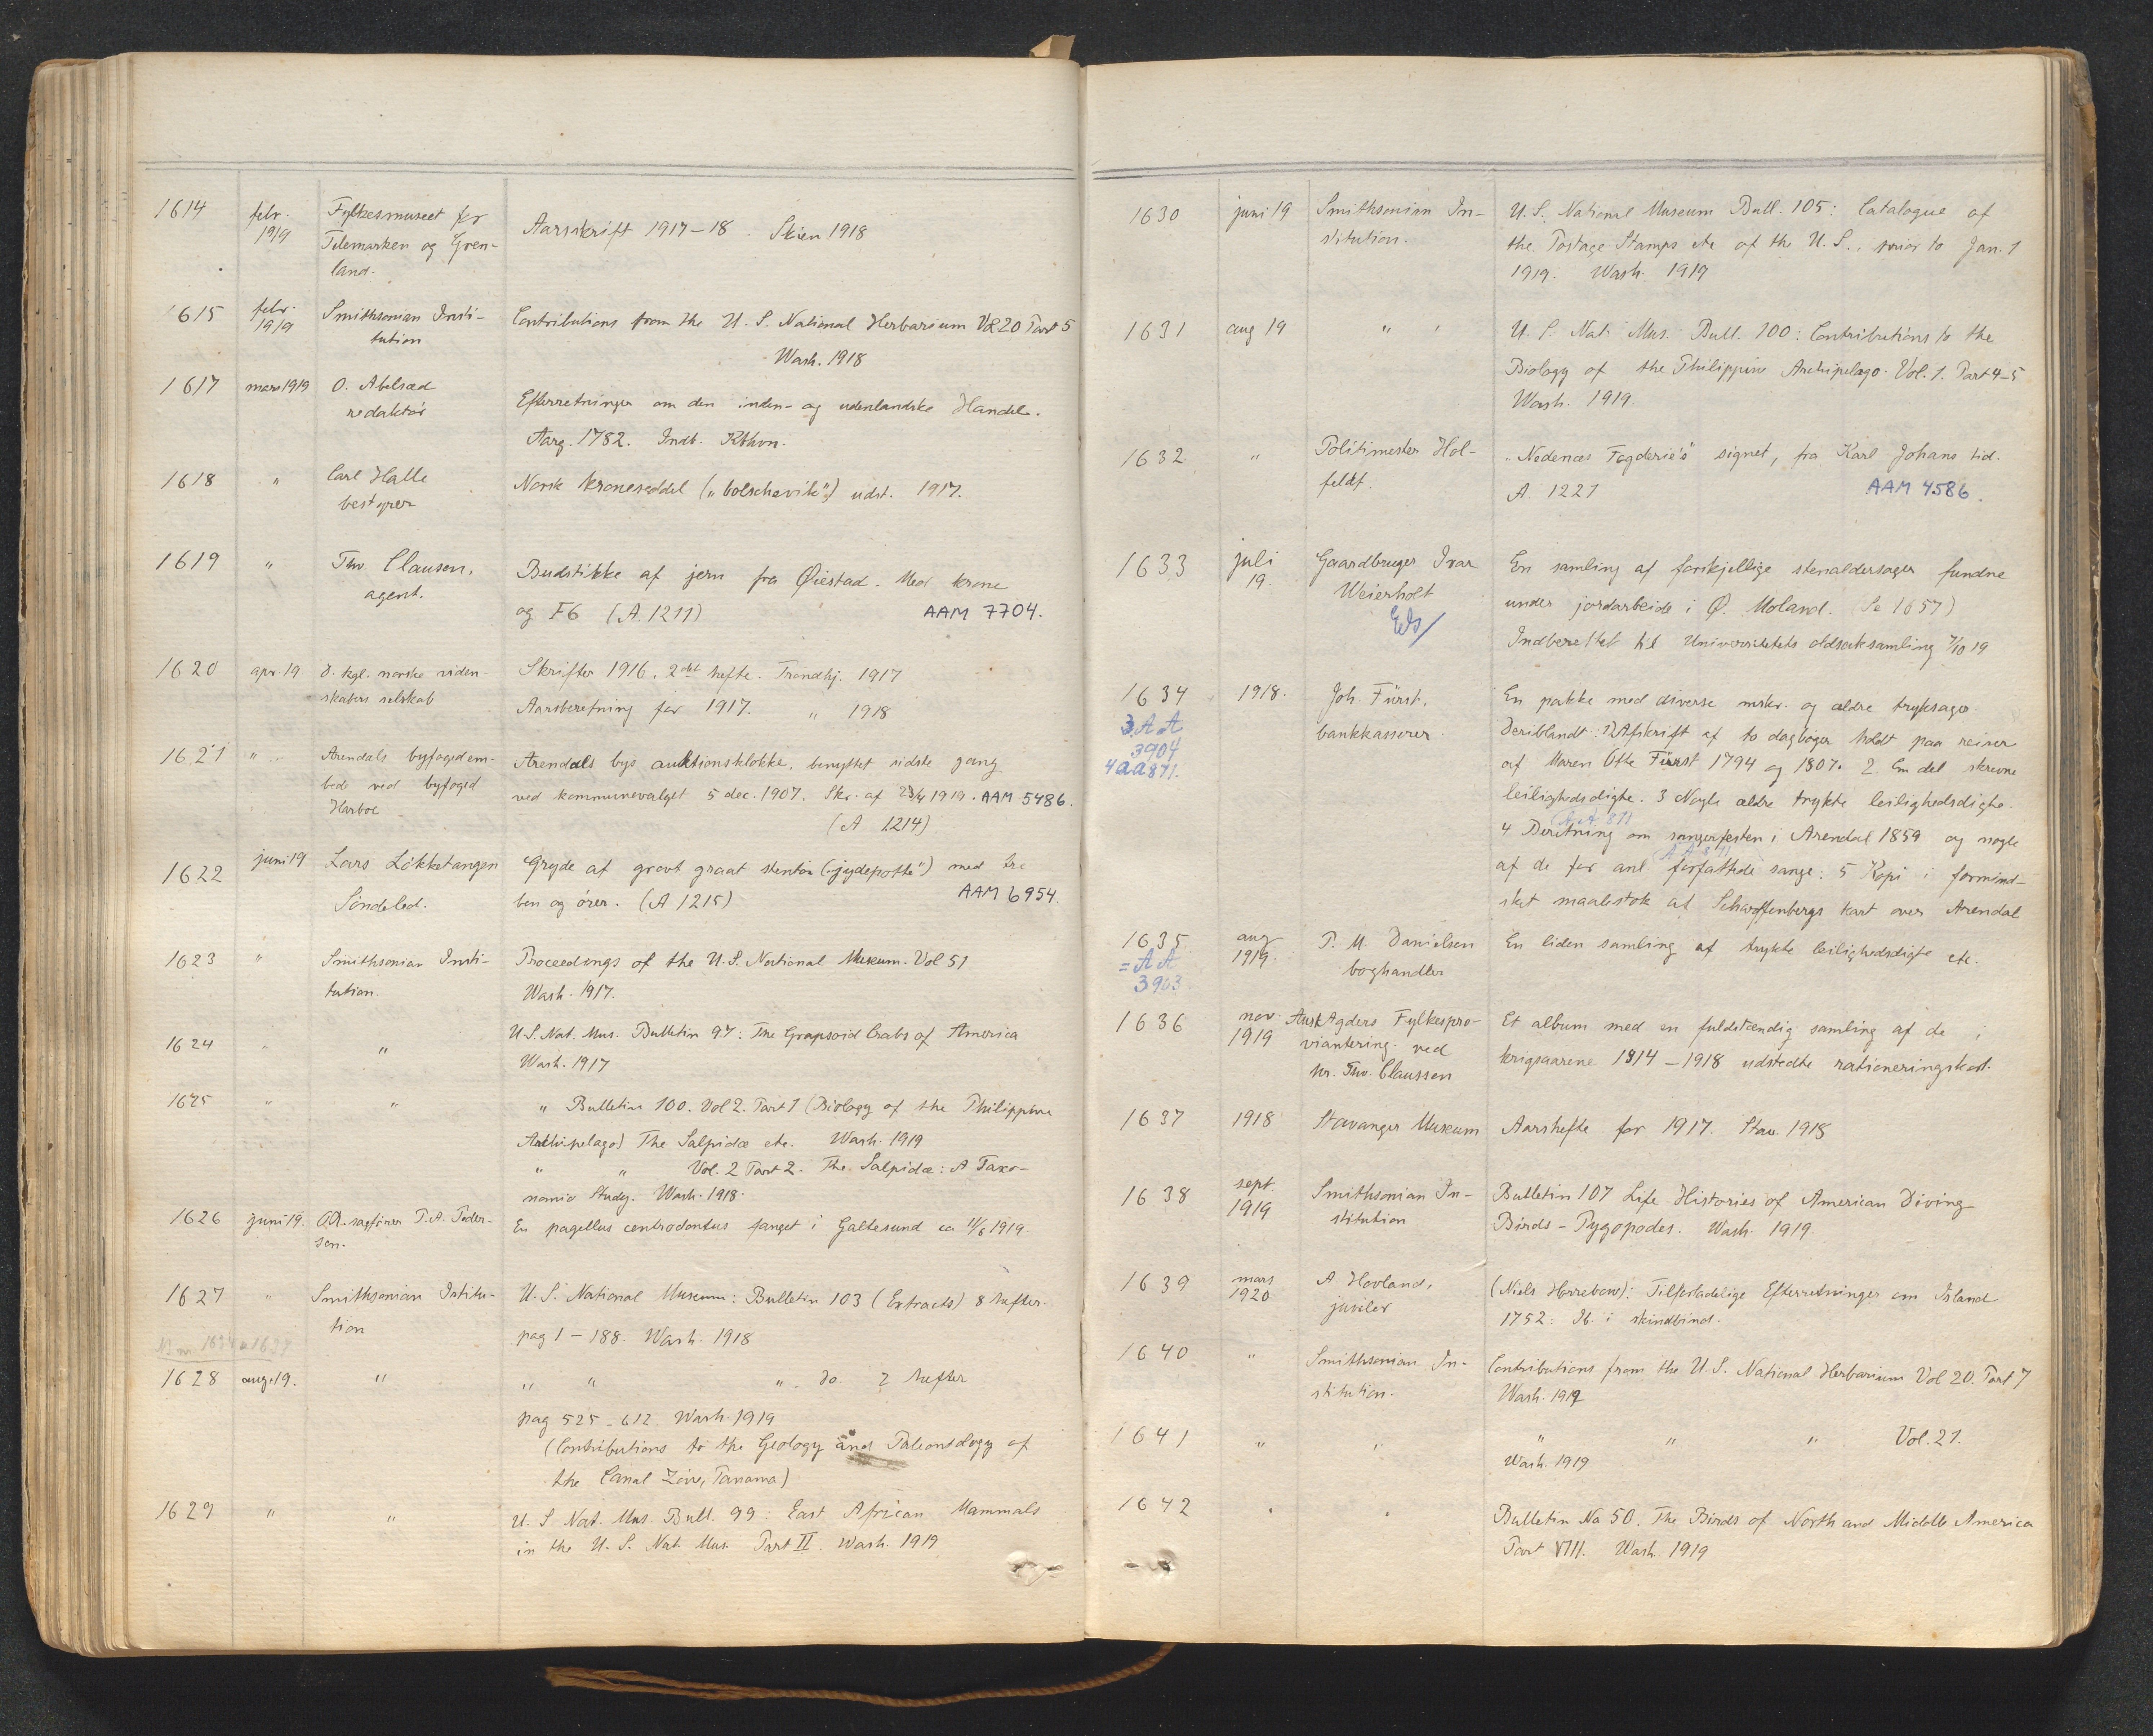 1614 febr. 1919 Fylkesmuseet for Telemarken og Grenland. Aarsskrift 1917-18. Skien 1918
1615 febr. 1919 Smithsonian Institution Contributions from the U. S. National Herbarium Vol 20 Part 5
Wash. 1918
1617 mars 1919 O. Abelsæd redaktør Efterretninger om den inden- og udenlandske Handel.
Aarg. 1782. Indb. Kbhvn.
1618 " Carl Halle bestyrer Norsk kroneseddel („bolschevik") udst. 1917.
1619 " Thv. Clausen, agent. Budstikke af jern fra Øiestad. Med krone
og F6 (A. 1211) AAM 7704.
1620 apr. 19 d. kgl. norske videnskabers selskab Skrifter 1916. 2det hefte. Trondhj. 1917
Aarsberetning for 1917. " 1918
1621 " Arendals byfogedembede ved byfoged Harboe Arendals bys auktionsklokke, benyttet sidste gang
ved kommunevalget 5 dec. 1907. Skr. af 23/4 1919. AAM 5486.
(A 1214)
1622 juni 19 Lars Løkketangen Søndeled. Gryde af grovt graat stentøi („jydepotte") med tre
ben og ører. (A 1215) AAM 6954
1623 " Smithsonian Institution. Proceedings of the U.S. National Museum. Vol 51
Wash. 1917.
1624 " " U.S. Nat. Mus. Bulletin 97: The Grapsoid Crabs of America
Wash. 1917
1625 " " " Bulletin 100. Vol 2. Part 1 (Biology of the Philippine
Archipelago) The Salpidæ etc. Wash. 1919
" " Vol. 2 Part 2. The Salpidæ: A Taxo-
nomic Study. Wash. 1918.
1626 juni 19. O.R. sagfører P. A. Pedersen. En pagellus centrodontus fanget i Galtesund ca 11/6 1919
1627 " Smithsonian Intitution U. S. National Museum: Bulletin 103 (Extracts) 8 hefter.
pag 1 - 188. Wash. 1918
1628 aug. 19. " " " " do. 2 hefter
pag 525 - 612. Wash. 1919
(Contributions to the Geology and Paleontology of
the Canal Zone, Panama)
1629 " " U. S Nat. Mus Bull. 99: East African Mammals
in the U. S. Nat. Mus. Part II. Wash. 1919
1630 juni 19 Smithsonian Institution. U. S. National Museum Bull. 105: Catalogue of
the Postage Stamps etc of the U. S., prior to Jan. 1
1919. Wash. 1919
1631 aug 19 " " U. S. Nat. Mus. Bull. 100: Contributions to the
Biology of the Philippine Archipelago. Vol. 1. Part 4-5
Wash. 1919.
1632 " Politimester Holfeldt. „Nedenæs Fogderie's" signet, fra Karl Johans tid.
A. 1221 AAM 4586.
1633 juli 19. Gaardbruger Ivar Weierholt En samling af forskjellige stenaldersager fundne
under jordarbeide i Ø. Moland. (Se 1657)
Indberettet til Universitetets oldsaksamling 7/10 19
1634 1918. Joh. Fürst, bankkasserer. En pakke med diverse mskr. og ældre tryksager.
3. AA 3904
4 aa 871.
Deriblandt: 1) Afskrift af to dagbøger holdt paa reiser
af Maren Otte Fürst 1794 og 1807. 2. En del skrevne
leilighedsdigte. 3 Nogle ældre trykte leilighedsdigte.
(AA 871)
4 Beretning om sangerfesten i Arendal 1859 og nogle
af de for anl. forfattede sange: 5 Kopi i formind-
sket maalestok af Scharffenbergs kart over Arendal
1635 aug 1919. P. M. Danielsen boghandler En liden samling af trykte leilighedsdigte etc.
= AA 3903
1636 nov. 1919 Aust Agders Fylkesproviantering ved hr. Thv. Claussen Et album med en fuldstændig samling af de i
krigsaarene 1914-1918 udstedte rationeringskort.
1637 1918 Stavanger Museum Aarshefte for 1917. Stav. 1918
1638 sept. 1919 Smithsonian Institution Bulletin 107 Life Histories of American Diving
Birds - Pygopodes. Wash. 1919.
1639 mars 1920 A. Hovland, juveler (Niels Horrebow): Tilforladelige Efterretninger om Island
1752. Ib. i skindbind.
1640 " Smithsonian Institution. Contributions from the U. S. National Herbarium Vol 20. Part 7
Wash. 1919
1641 " " " " " Vol. 21.
Wash. 1919
1642 " " Bulletin No 50. The Birds of North and Middle America
Part VIII. Wash. 1919